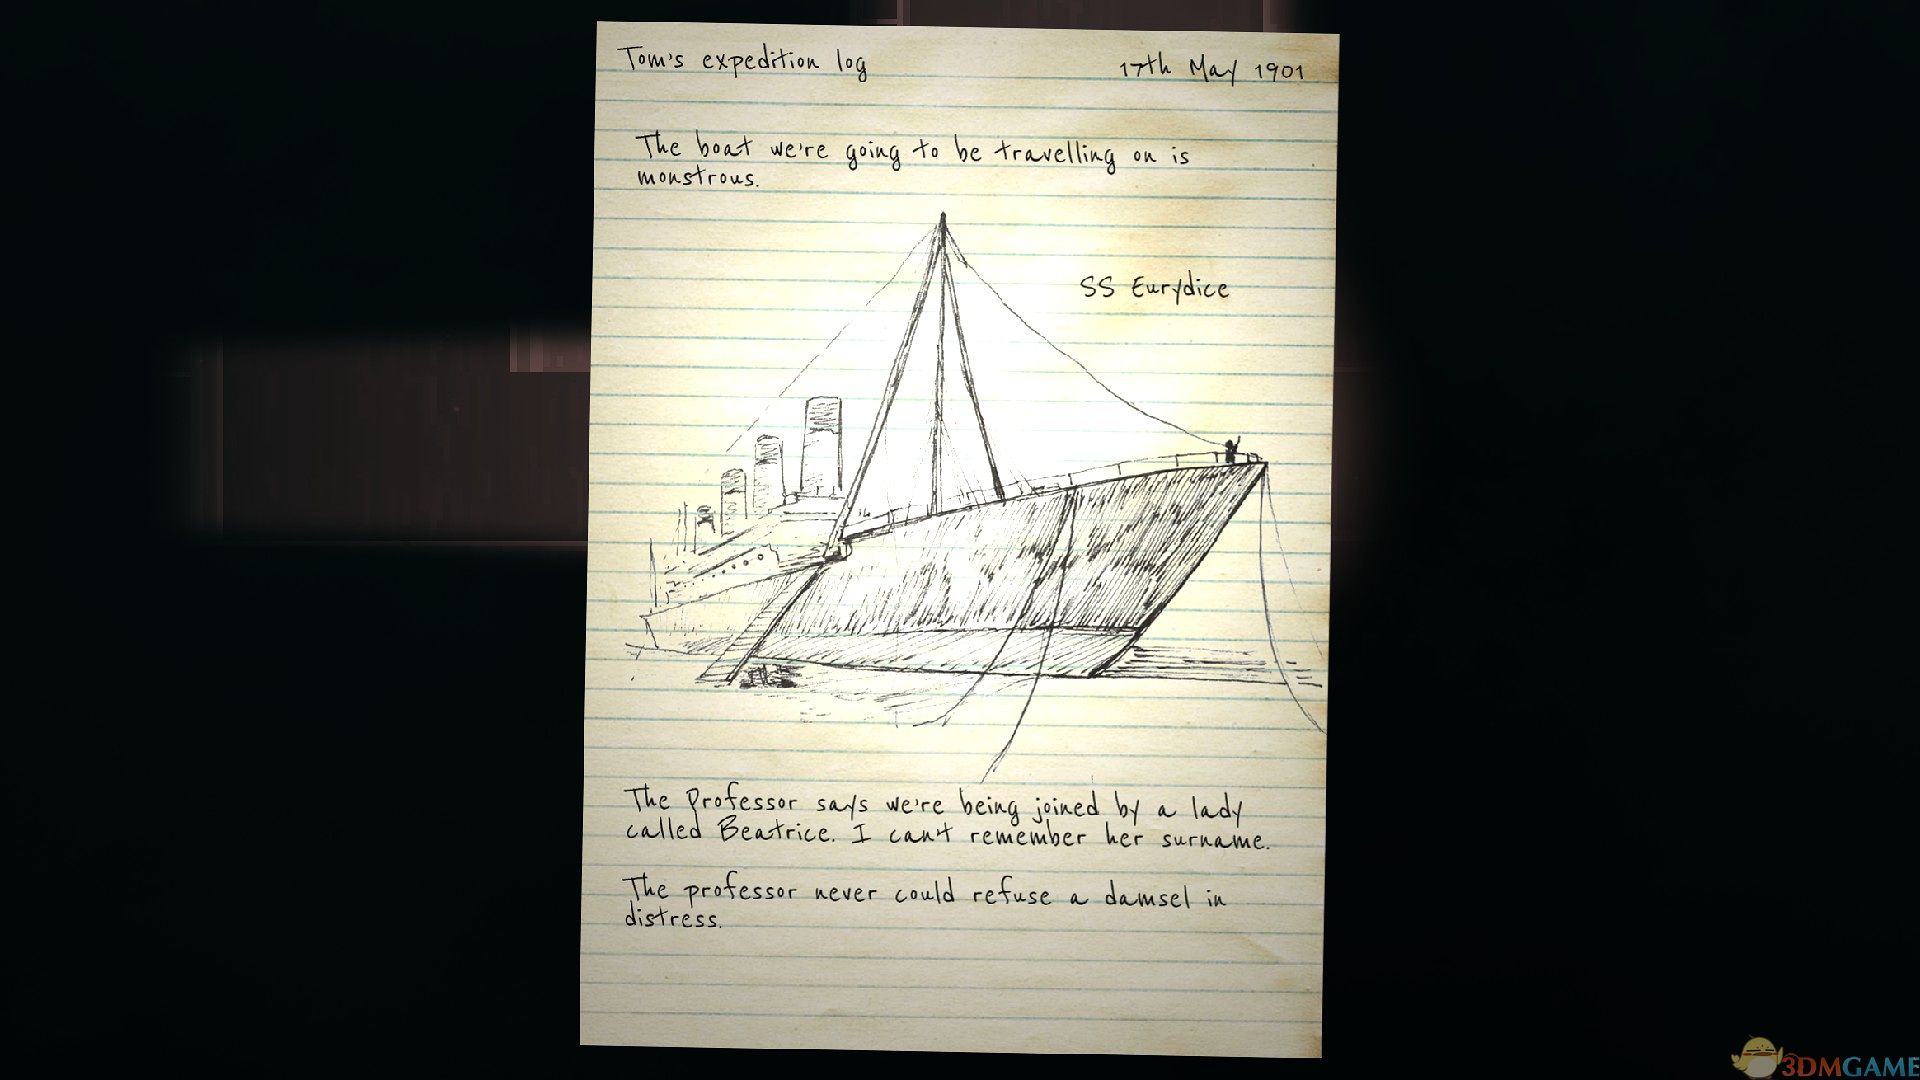 Tom's expedition log
17th May 1901
The boat we're going to be travelling on is
monstrous.
SS Eurydice
The Professor says we're being joined by a lady
called Beatrice. I can't remember her surname.
The professor never could refuse a damsel in
distress.
3DMGAME